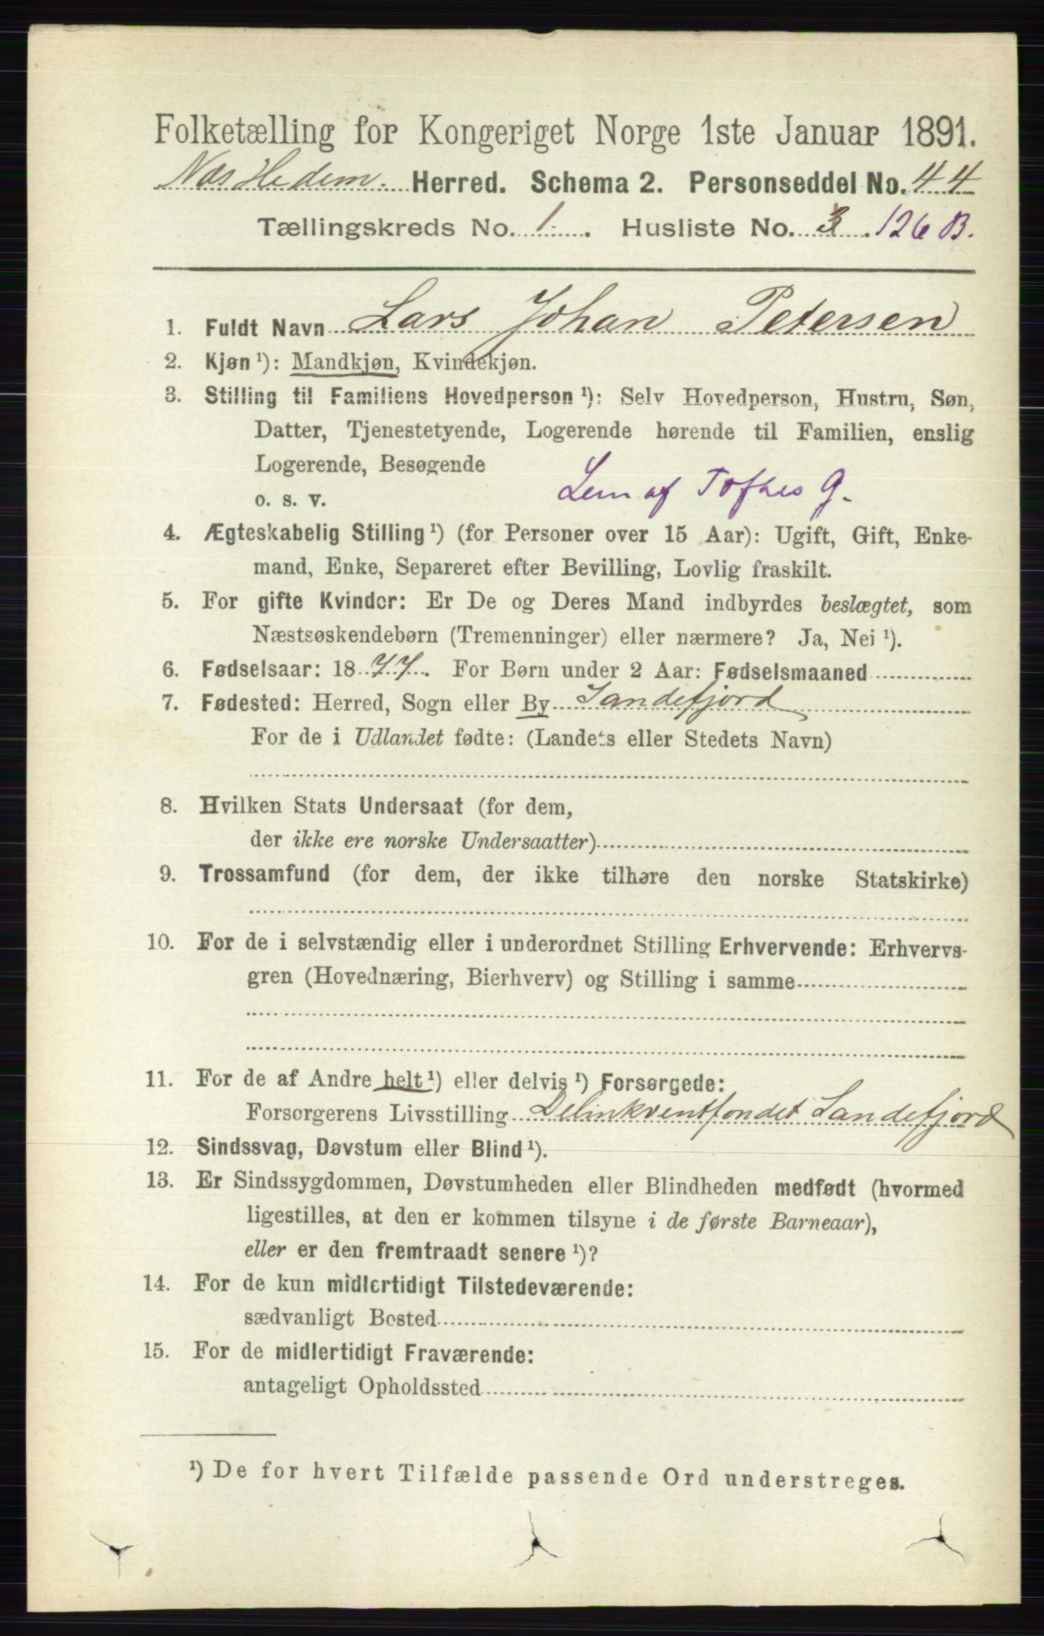 Folketælling for Kongeriget Norge 1ste Januar 1891.
Nes Hedem. Herred. Schema 2. Personseddel No. 44
Tællingskreds No. 1. Husliste No. 3. 126 B.
1. Fuldt Navn Lars Johan Petersen
2. Kjøn ¹): Mandkjøn, Kvindekjøn.
3. Stilling til Familiens Hovedperson ¹): Selv Hovedperson, Hustru, Søn,
Datter, Tjenestetyende, Logerende hørende til Familien, enslig
Logerende, Besøgende
o. s. v. Lem af Toftes G.
4. Ægteskabelig Stilling ¹) (for Personer over 15 Aar): Ugift, Gift, Enke-
mand, Enke, Separeret efter Bevilling, Lovlig fraskilt.
5. For gifte Kvinder: Er De og Deres Mand indbyrdes beslægtet, som
Næstsøskendebørn (Tremenninger) eller nærmere? Ja, Nei ¹).
6. Fødselsaar: 1877. For Børn under 2 Aar: Fødselsmaaned
7. Fødested: Herred, Sogn eller By Sandefjord
For de i Udlandet fødte: (Landets eller Stedets Navn)
8. Hvilken Stats Undersaat (for dem,
der ikke ere norske Undersaatter)
9. Trossamfund (for dem, der ikke tilhøre den norske Statskirke)
10. For de i selvstændig eller i underordnet Stilling Erhvervende: Erhvervs-
gren (Hovednæring, Bierhverv) og Stilling i samme
11. For de af Andre helt ¹) eller delvis ¹) Forsørgede:
Forsørgerens Livsstilling Delinkventfondet Sandefjord
12. Sindssvag, Døvstum eller Blind ¹).
13. Er Sindssygdommen, Døvstumheden eller Blindheden medfødt (hvormed
ligestilles, at den er kommen tilsyne i de første Barneaar),
eller er den fremtraadt senere ¹)?
14. For de kun midlertidigt Tilstedeværende:
sædvanligt Bosted
15. For de midlertidigt Fraværende:
antageligt Opholdssted
¹) De for hvert Tilfælde passende Ord understreges.